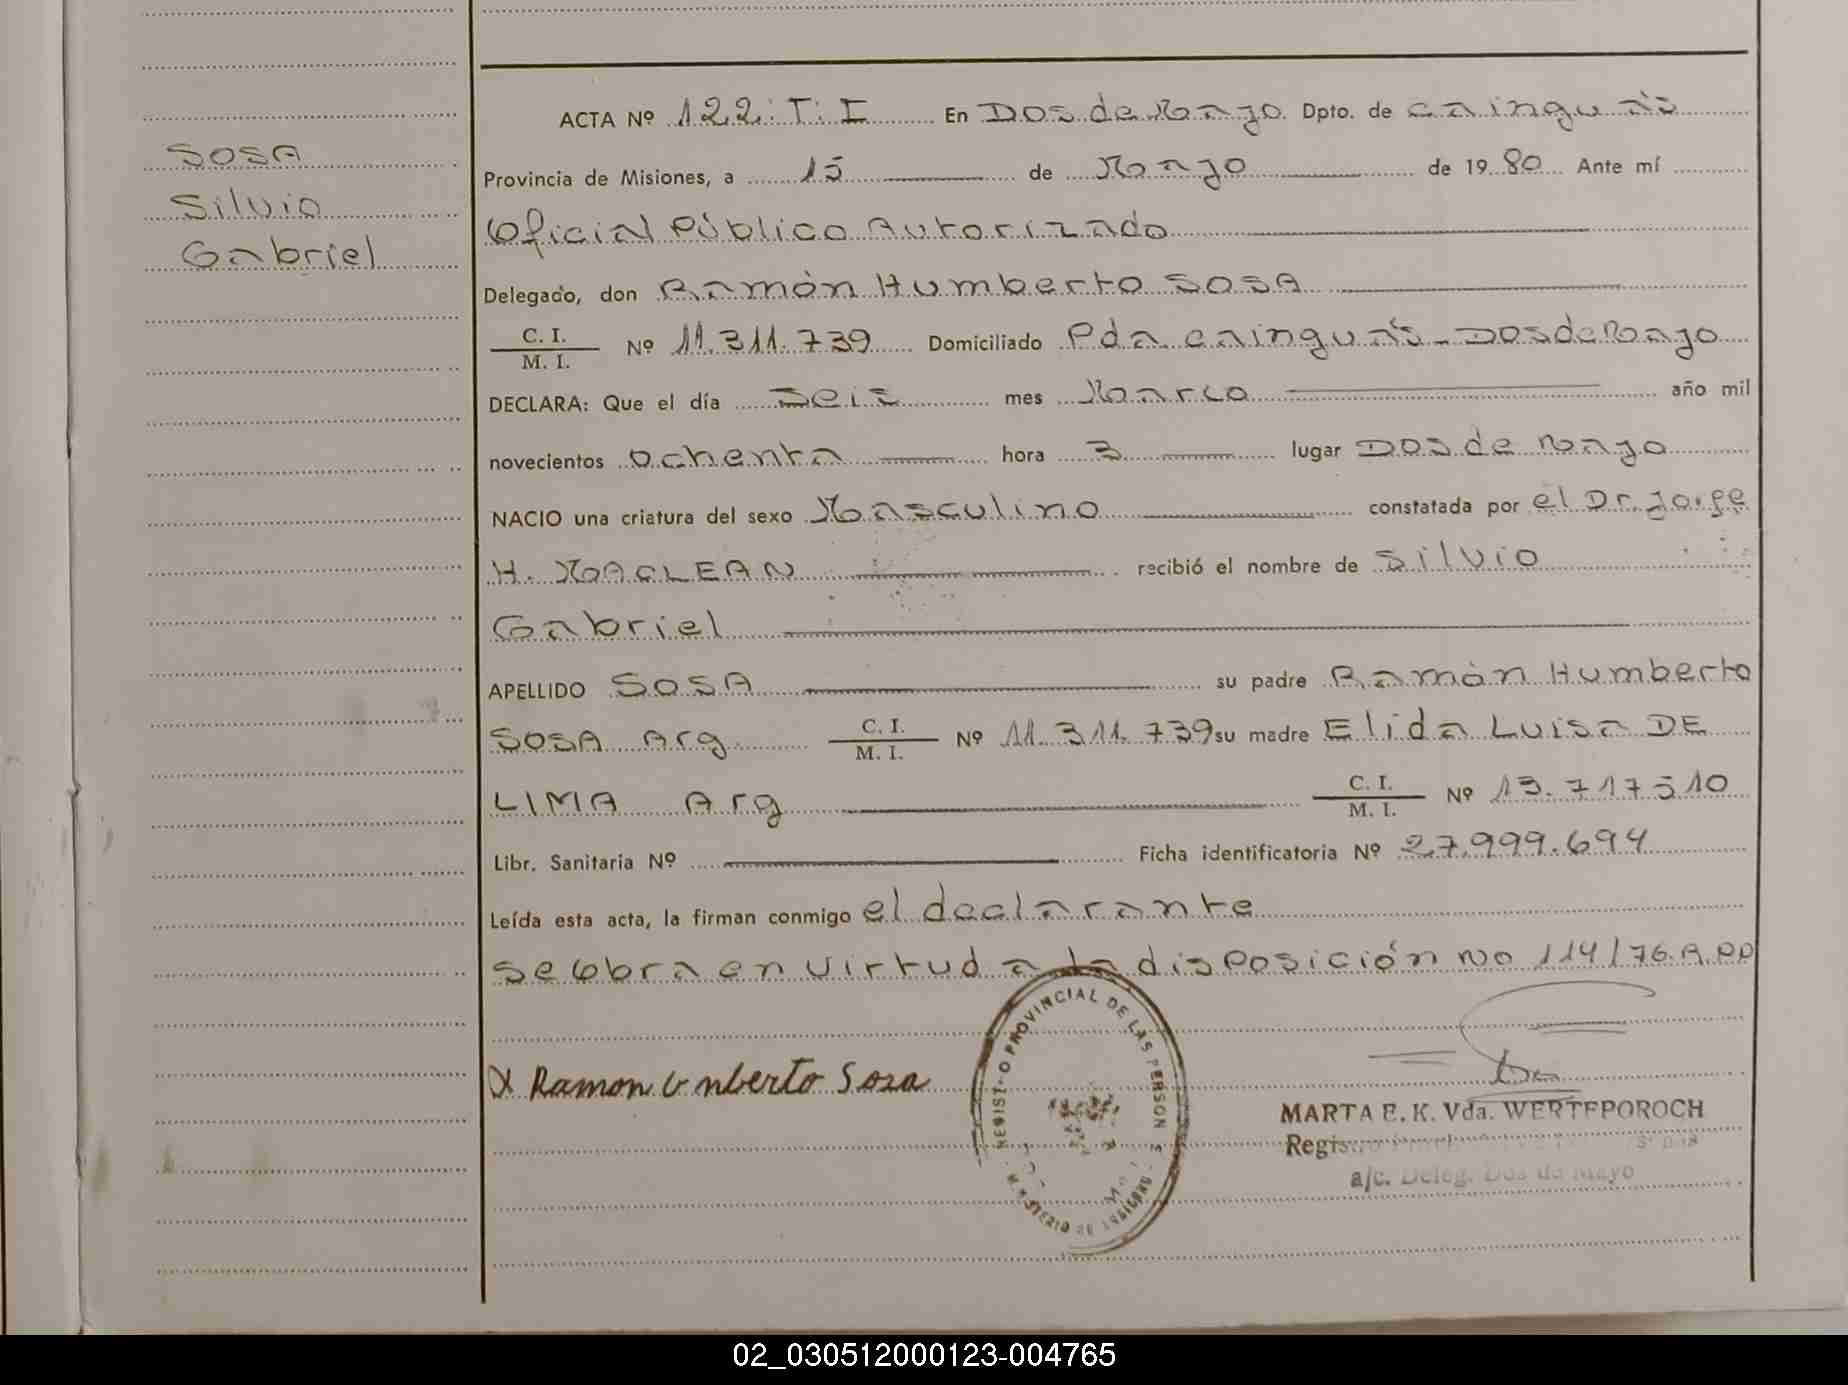 SOSA
Silvio
Gabriel
ACTA Nº 122: T: I En Dos de Mayo Dpto. de Cainguás
Provincia de Misiones, a 15 de Mayo de 19 80 Ante mí
Oficial Público Autorizado
Delegado, don Ramón Humberto SOSA
C. I. / M. I. Nº 11.311.739 Domiciliado Pda. Cainguás - Dos de Mayo
DECLARA: Que el día Seis mes Marzo año mil
novecientos ochenta hora 3 lugar Dos de Mayo
NACIO una criatura del sexo Masculino constatada por el Dr. Jorge
H. MACLEAN recibió el nombre de Silvio
Gabriel
APELLIDO SOSA su padre Ramón Humberto
SOSA Arg C. I. / M. I. Nº 11.311.739 su madre Elida Luisa DE
LIMA Arg C. I. / M. I. Nº 13.717510
Libr. Sanitaria Nº Ficha identificatoria Nº 27.999.694
Leída esta acta, la firman conmigo el declarante
Se obra en virtud a la disposición No 114/76.R.PP
REGISTRO PROVINCIAL DE LAS PERSONAS
MINISTERIO DE GOBIERNO
X Ramon Umberto Sosa
MARTA E. K. Vda. WERTEPOROCH
a/c. Deleg. Dos de Mayo
02_030512000123-004765